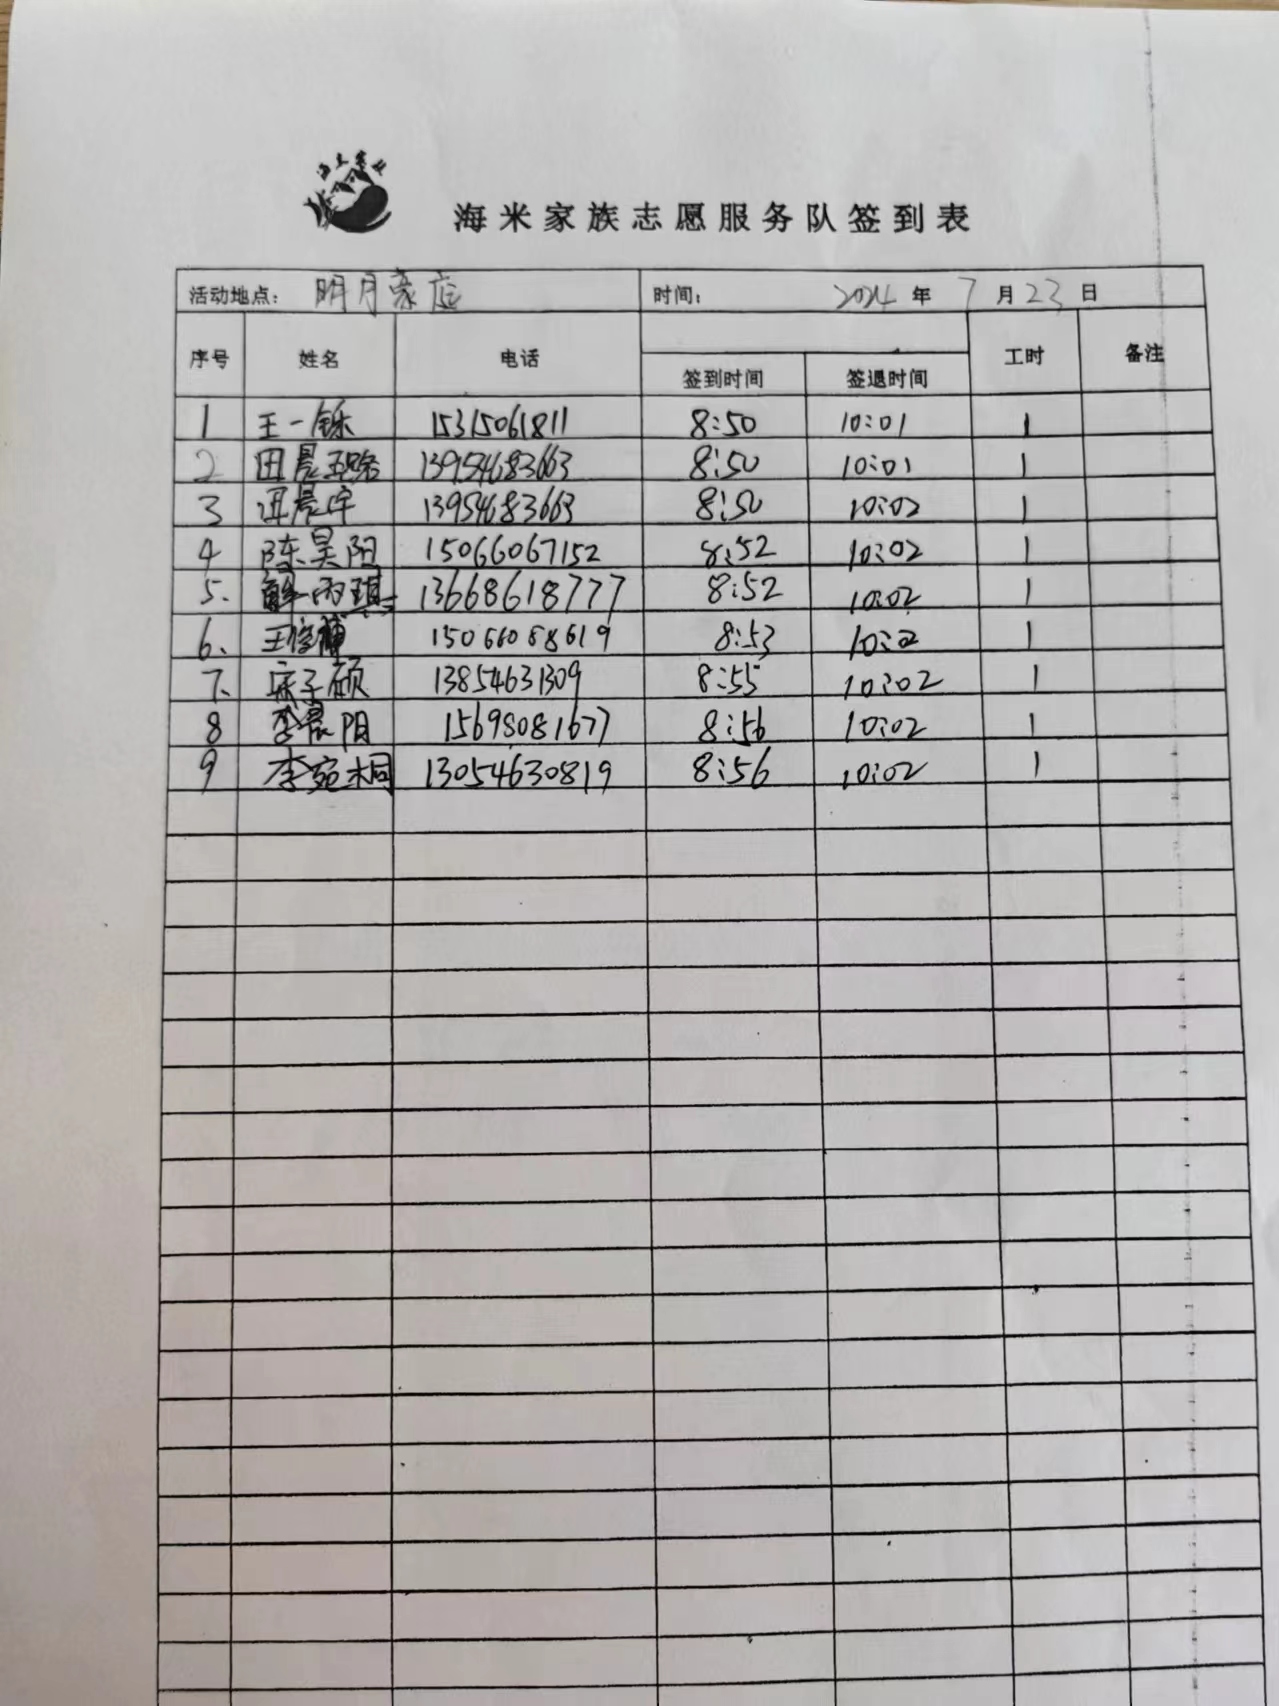 海米家族志愿服务队签到表
活动地点: 明月豪庭 时间: 2024 年 7 月 23 日
序号 姓名 电话 签到时间 签退时间 工时 备注
1 王一铄 15315061811 8:50 10:01 1
2 田晨 13954683663 8:50 10:01 1
3 晨宇 13954683663 8:50 10:02 1
4 陈昊阳 15066067152 8:52 10:02 1
5、 解雨琪 13668618777 8:52 10:02 1
6、 王俊 15066088619 8:53 10:02 1
7、 宋子硕 13854631309 8:55 10:02 1
8 李晨阳 15698081677 8:56 10:02 1
9 李宛桐 13054630819 8:56 10:02 1